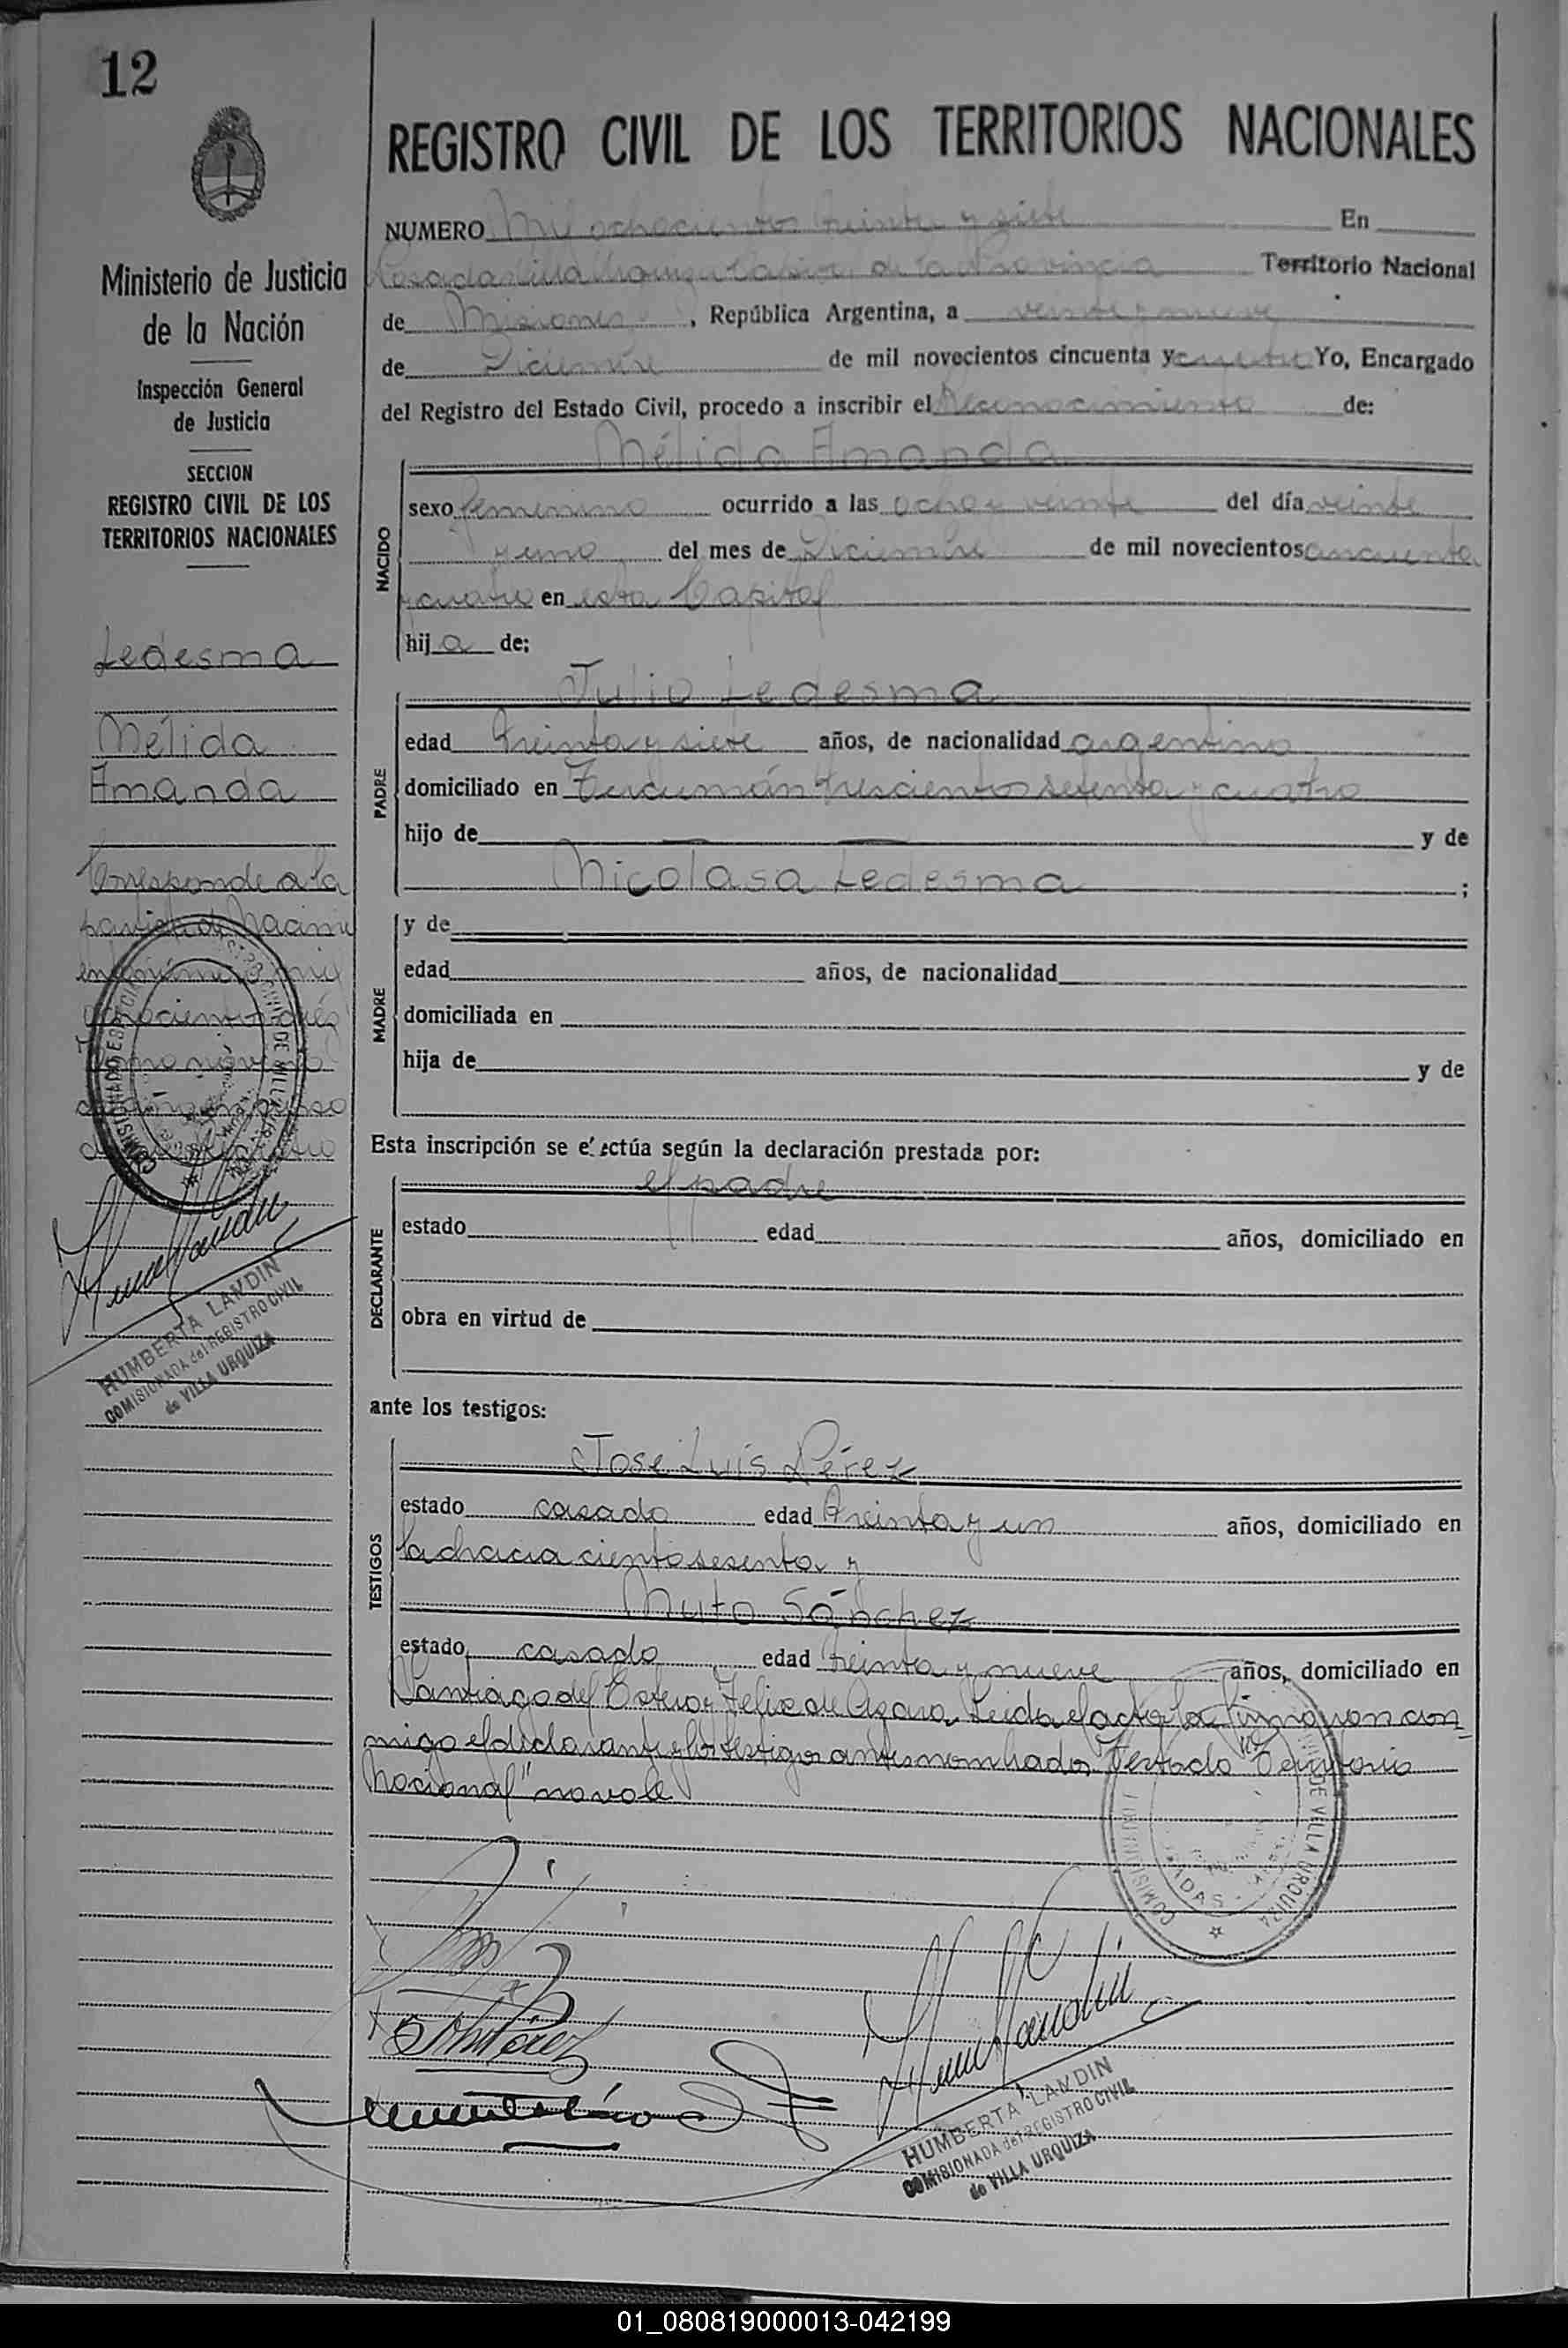 12
REGISTRO CIVIL DE LOS TERRITORIOS NACIONALES
Ministerio de Justicia
de la Nación
Inspección General
de Justicia
SECCION
REGISTRO CIVIL DE LOS
TERRITORIOS NACIONALES
Ledesma
Mélida
Amanda
Corresponde a la
partida de Nacimi
HUMBERTA LANDIN
COMISIONADA del REGISTRO CIVIL
de VILLA URQUIZA
NUMERO Mil ochocientos treinta y siete En
Posadas Villa Urquiza Capital de la Provincia Territorio Nacional
de Misiones, República Argentina, a veinte y nueve
de Diciembre de mil novecientos cincuenta y cuatro Yo, Encargado
del Registro del Estado Civil, procedo a inscribir el Reconocimiento de:
NACIDO
Mélida Amanda
sexo femenino ocurrido a las ocho y veinte del día veinte
y uno del mes de Diciembre de mil novecientos cincuenta
y cuatro en esta Capital
hija de:
PADRE
Julio Ledesma
edad treinta y siete años, de nacionalidad argentino
domiciliado en Tucumán trescientos setenta y cuatro
hijo de y de
Nicolasa Ledesma ;
MADRE
y de
edad años, de nacionalidad
domiciliada en
hija de y de
Esta inscripción se efectúa según la declaración prestada por:
DECLARANTE
el padre
estado edad años, domiciliado en
obra en virtud de
ante los testigos:
TESTIGOS
José Luis Pérez
estado casado edad treinta y un años, domiciliado en
la chacra ciento sesenta y
Muto Sánchez
estado casado edad treinta y nueve años, domiciliado en
Santiago del Estero y Felix de Azara. Leida el acta la firmaron con
migo el declarante y los testigos antes nombrados Testado "Territorio
Nacional" no vale
COMISIONADO DE VILLA URQUIZA
HUMBERTA LANDIN
COMISIONADA del REGISTRO CIVIL
de VILLA URQUIZA
01_080819000013-042199